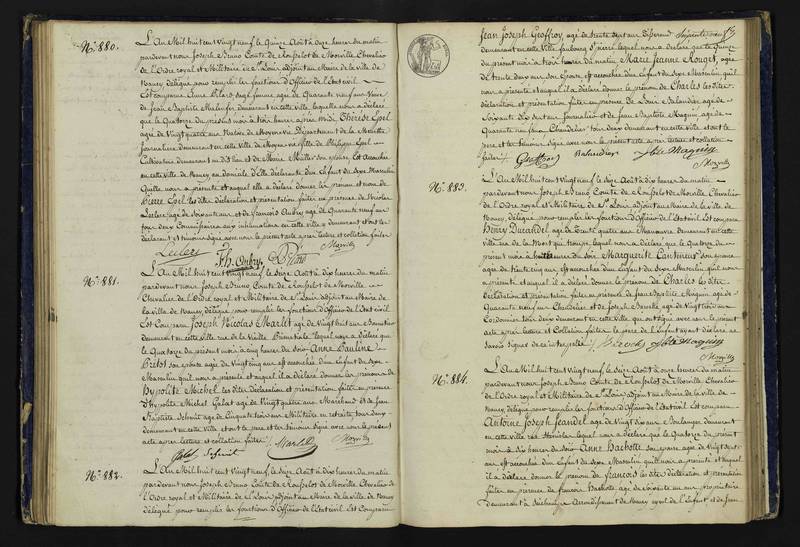 N.º 880.
L'An Mil huit cent Vingt neuf, le Quinze Août à onze heures du matin
pardevant nous Joseph Bruno Comte de Rousselot de Morville Chevalier
de l'Ordre royal et Militaire de St Louis adjoint au Maire de la ville de
Nancy délégué pour remplir les fonctions d'Officier de l'état civil
Est comparue Anne Pilard sage femme agée de Quarante neuf ans Veuve
de Jean Baptiste demeurant en cette ville laquelle nous a déclaré
que le Quatorze du présent mois à trois heures après midi Thérèse Epel
agée de Vingt quatre ans Native de Moyenvic Département de la Meurthe
Journalière demeurant en cette ville de Philippe Epel
Cultivateur demeurant au dit lieu et de Marie Muller son épouse, Est accouchée
en cette ville de Nancy en domicile d'Elle déclarante d'un Enfant du Sexe Masculin
Qu'elle nous a présenté et auquel elle a déclaré donner les prénom et nom de
Pierre Epel, les dites déclaration et présentation faites en présence de Nicolas
Leclerc agé de Soixante ans et de François Aubry agé de Quarante neuf ans
tous deux Commissaires aux inhumations en cette ville y demeurant et ont la
déclarante et témoins signé avec nous le présent acte après lecture et collation faites
Leclerc Fh. Aubry Pilard Morville
N.º 881.
L'An Mil huit cent Vingt neuf, le Seize Août à dix heures du matin
pardevant nous Joseph Bruno Comte de Rousselot de Morville
Chevalier de l'Ordre royal et Militaire de St Louis adjoint au Maire de
la ville de Nancy délégué pour remplir les fonctions d'Officier de l'état civil
Est Comparu Joseph Nicolas Marlet agé de Vingt huit ans
demeurant en cette ville rue de la Vieille Primatiale lequel nous a déclaré que
le Quatorze du présent mois à cinq heures du soir Anne Pauline
son épouse agée de Vingt cinq ans Est accouchée d'un Enfant du Sexe
Masculin qu'il nous a présenté et auquel il a déclaré donner les prénoms de
Hypolite Michel, les dites déclaration et présentation faites en présence
d'Hypolite Michel Galat agé de Vingt quatre ans Marchand et de Jean
Baptiste Schmit agé de Cinquante trois ans Militaire en retraite tous deux
demeurant en cette ville et ont le père et les témoins signé avec nous le présent
acte après lecture et collation faites
Galat Schmit Marlet Morville
N.º 882.
L'An Mil huit cent Vingt neuf, le Seize Août à dix heures du matin
pardevant nous Joseph Bruno Comte de Rousselot de Morville Chevalier de
l'Ordre royal et Militaire de St Louis adjoint au Maire de la ville de Nancy
délégué pour remplir les fonctions d'Officier de l'état civil Est Comparu
Jean Joseph Geoffroy, agé de trente sept ans Tisserand
demeurant en cette Ville faubourg St pierre lequel nous a déclaré que le Quinze
du présent mois à trois heures du matin Marie Jeanne Rouget, agée
de trente deux ans son Epouse, est accouchée d'un Enfant du Sexe Masculin qu'il
nous a présenté et auquel il a déclaré donner le prénom de Charles les dites
déclaration et présentation faites en présence de Louis agé de
Soixante dix ans Journalier et de Jean Baptiste Maguin agé de
Quarante neuf ans Chandelier tous deux demeurant en cette ville et ont le
père et les témoins signé avec nous le présent acte après lecture et collation
faites
Geoffroy Jbte Maguin Morville
N.º 883.
L'An Mil huit cent Vingt neuf, le Seize Août à dix heures du matin
pardevant nous Joseph Bruno Comte de Rousselot de Morville Chevalier
de l'Ordre royal et Militaire de St Louis adjoint au Maire de la ville de
Nancy, délégué pour remplir les fonctions d'Officier de l'état civil Est comparu
Henry Durandel agé de Trente quatre ans Manœuvre demeurant en cette
ville rue de la lequel nous a déclaré que le Quatorze du
présent mois à huit heures du soir Marguerite son épouse
agée de trente cinq ans, est accouchée d'un Enfant du Sexe Masculin qu'il nous
a présenté et auquel il a déclaré donner le prénom de Charles les dites
déclaration et présentation faites en présence de Jean Baptiste Maguin agé de
Quarante neuf ans Chandelier et de Joseph agé de Vingt trois ans
Cordonnier tous deux demeurant en cette ville, qui ont signé avec nous le présent
acte après lecture et Collation faites le père de l'enfant ayant déclaré ne
savoir signer de ce interpellé
Jbte Maguin
Morville
N.º 884.
L'An Mil huit cent Vingt neuf, le Seize Août à onze heures du matin
pardevant nous Joseph Bruno Comte de Rousselot de Morville Chevalier
de l'Ordre royal et Militaire de St Louis adjoint au Maire de la ville de
Nancy, délégué pour remplir les fonctions d'Officier de l'état civil Est comparu
Antoine Joseph Jeandel agé de Vingt six ans Boulanger demeurant
en cette ville rue St Stanislas lequel nous a déclaré que le Quatorze du présent
mois à dix heures du soir Anne Hachotte son épouse agée de Vingt sept
ans, est accouchée d'un Enfant du Sexe Masculin qu'il nous a présenté et auquel
il a déclaré donner le prénom de françois les dites déclaration et présentation
faites en présence de françois Hachotte agé de Soixante un ans propriétaire
demeurant à Arrondissement de Nancy ayeul de l'Enfant et de Jean